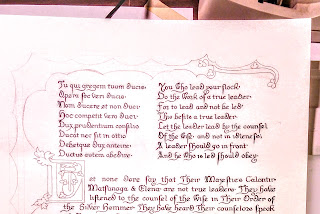 Tu qui gregem tuum ducis
Opera fac veri ducis
Nam ducere et non duci
Hoc competit vero duci
Dux prudentium consilio
Ducat nec sit in otio
Debetque dux anteire
Ductus autem obedire
You who lead your flock
Do the work of a true leader
For to lead and not be led
This befits a true leader
Let the leader lead by the counsel
Of the wise and not in idleness
A leader should go in front
And he who is led should obey
et none dare say that Their Majesties Calontir
Matsunaga & Elena are not true leaders They have
listened to the counsel of the Wise in Their Order of
the Silver Hammer They have heard Their counselors speak